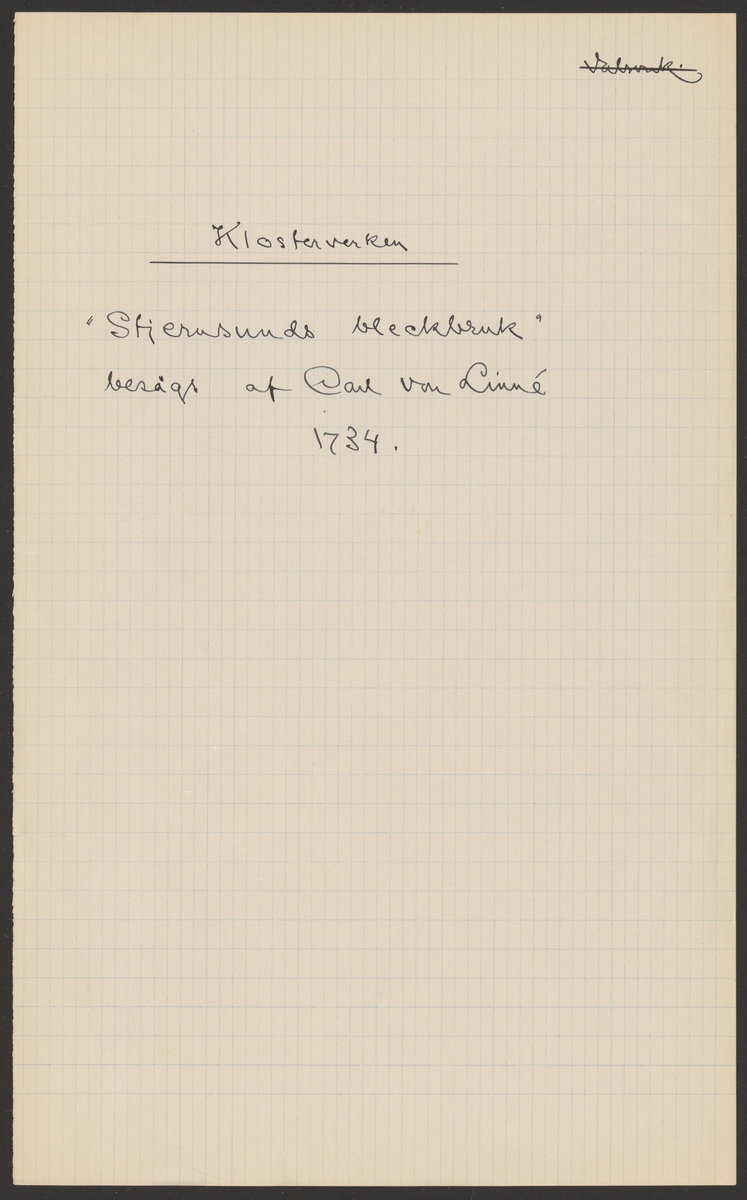 Klosterverken
"Stjernsunds bleckbruk"
besågs af Carl von Linné
1734.